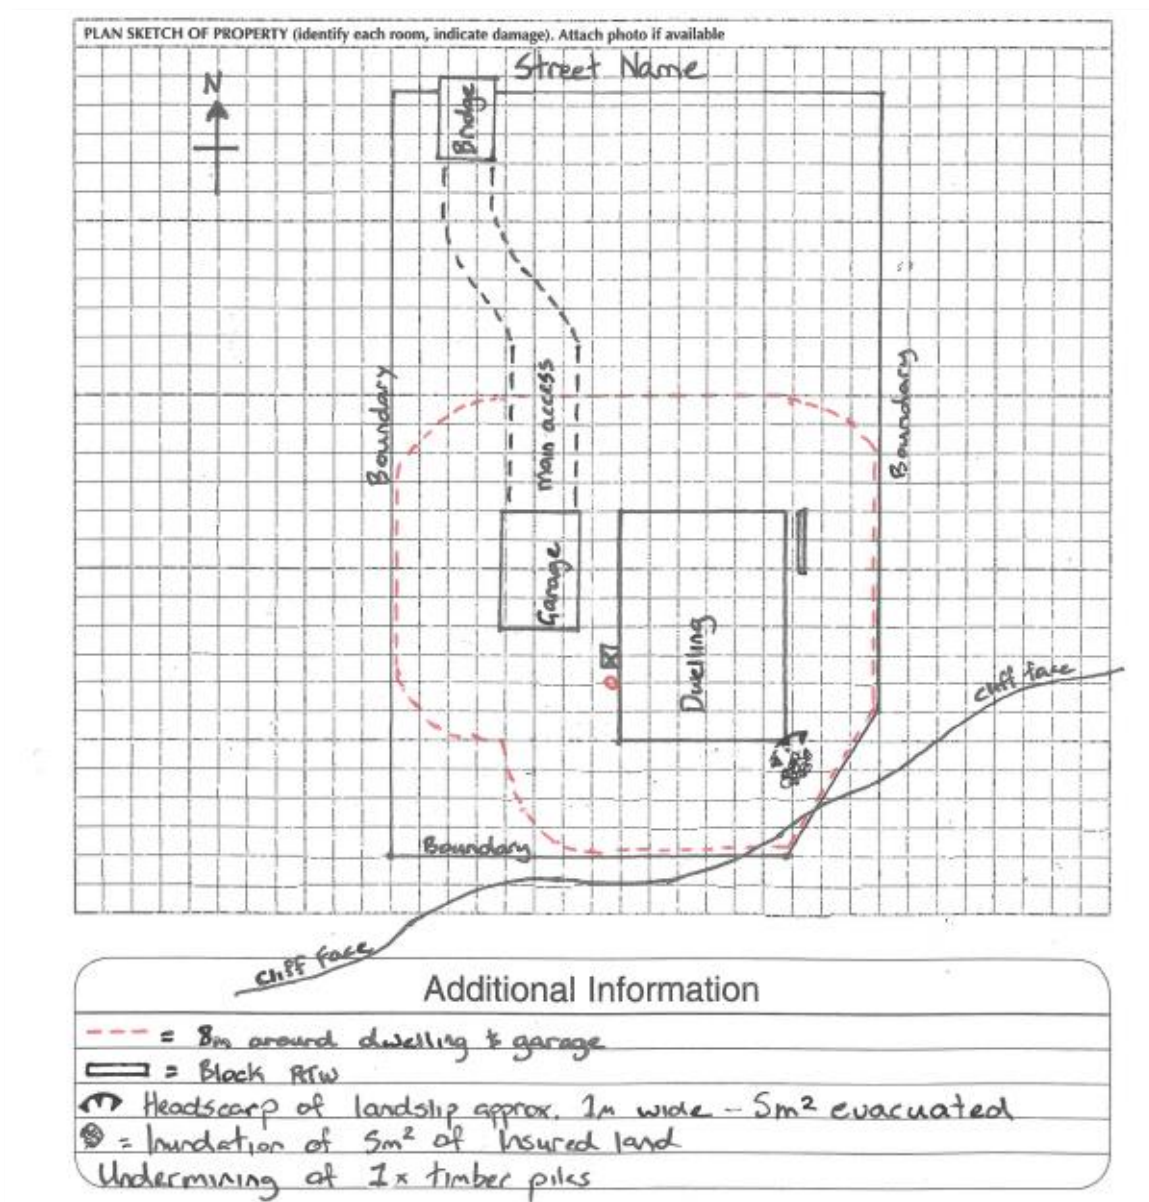 PLAN SKETCH OF PROPERTY (identify each room, indicate damage). Attach photo if available
Street Name
N
Bridge
Boundary
main access
Boundary
Garage
Dwelling
cliff face
Boundary
cliff face
Additional Information
= 8m around dwelling & garage
= Block RTW
Headscarp of landslip approx. 1m wide - 5m² evacuated
= Inundation of 5m² of Insured land
Undermining of 1x timber piles